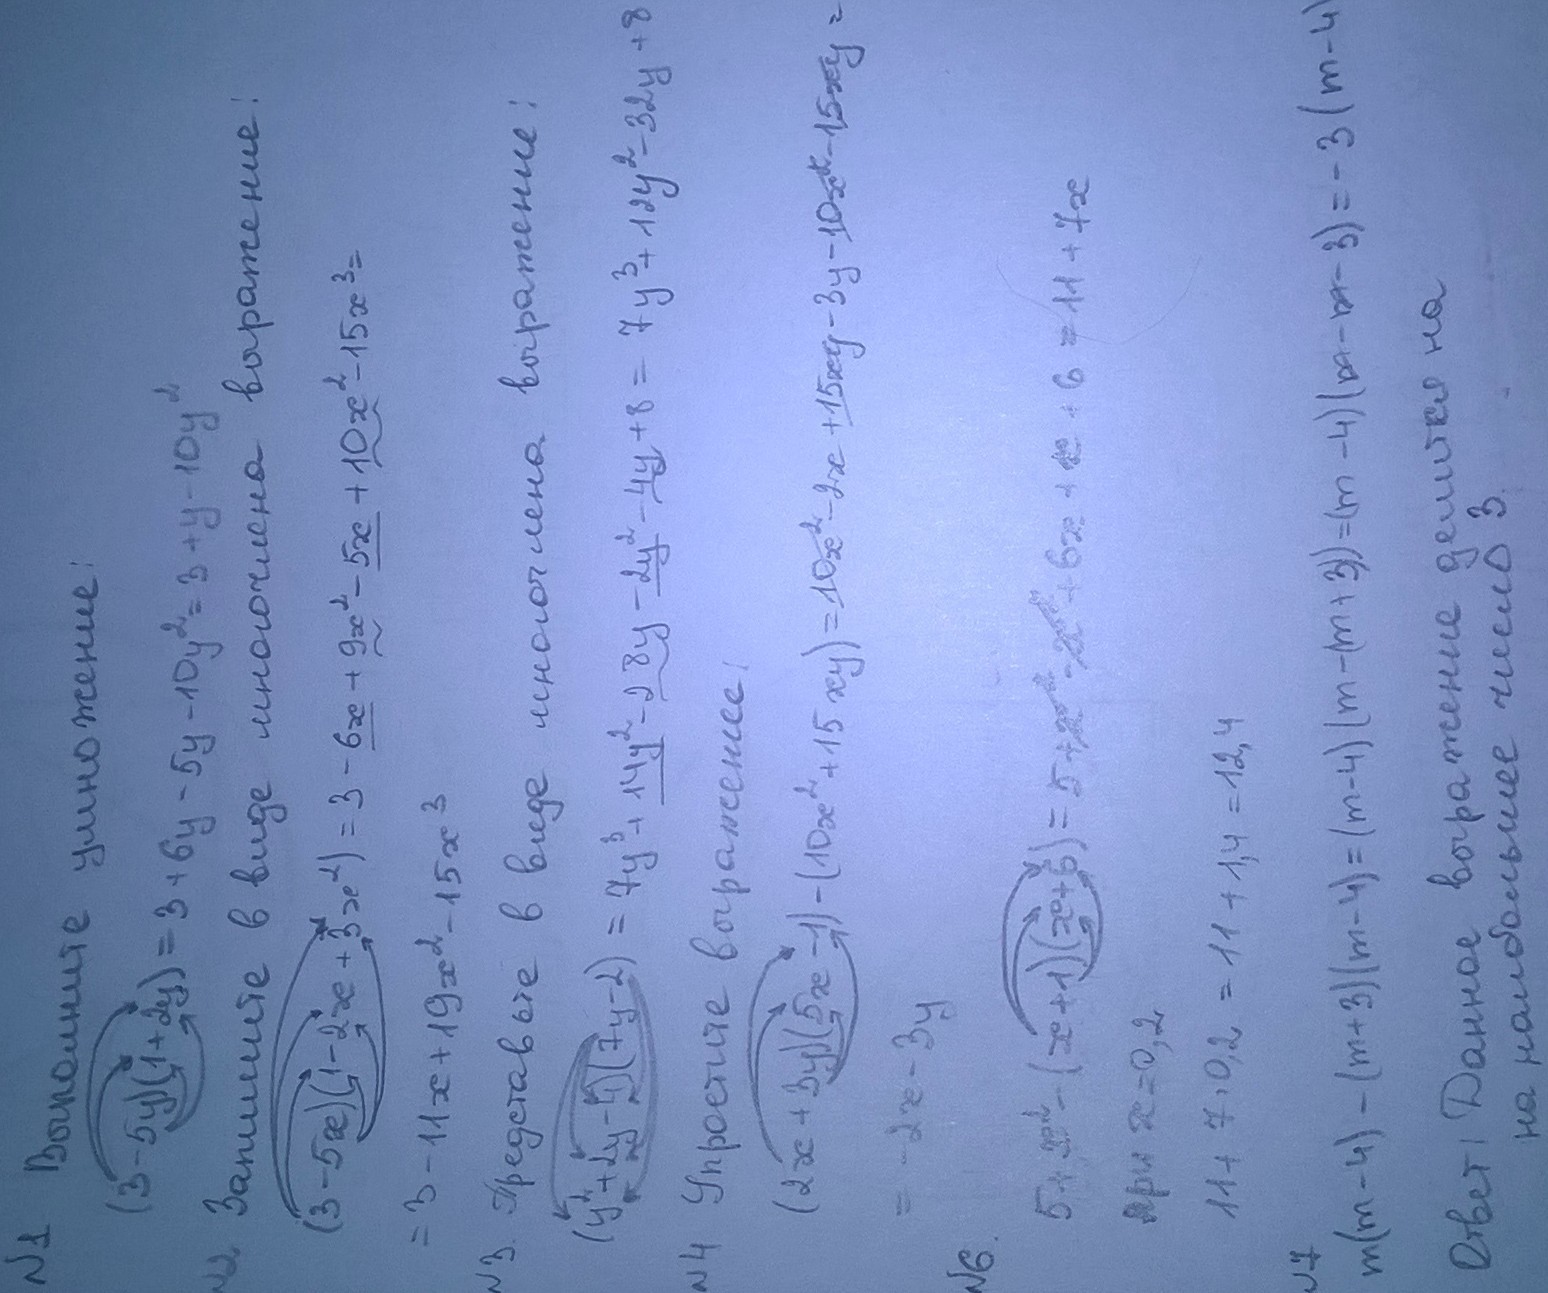 N1 Выполните умножение:
(3-5y)(1+2y)=3+6y-5y-10y²=3+y-10y²
N2 Запишите в виде многочлена выражение:
(3-5x)(1-2x+3x²)=3-6x+9x²-5x+10x²-15x³=
=3-11x+19x²-15x³
N3. Представьте в виде многочлена выражение:
(y²+2y-4)(7y-2)=7y³+14y²-28y-2y²-4y+8=7y³+12y²-32y+8
N4 Упростите выражение:
(2x+3y)(5x-1)-(10x²+15xy)=10x²-2x+15xy-3y-10x²-15xy=
=-2x-3y
N6.
5+x²-(x+1)(x+6)=5+x²-x²+6x+x+6=11+7x
при x=0,2
11+7·0,2=11+1,4=12,4
N7
m(m-4)-(m+3)(m-4)=(m-4)(m-(m+3))=(m-4)(m-m-3)=-3(m-4)
Ответ: Данное выражение делится на
на наибольшее число 3.